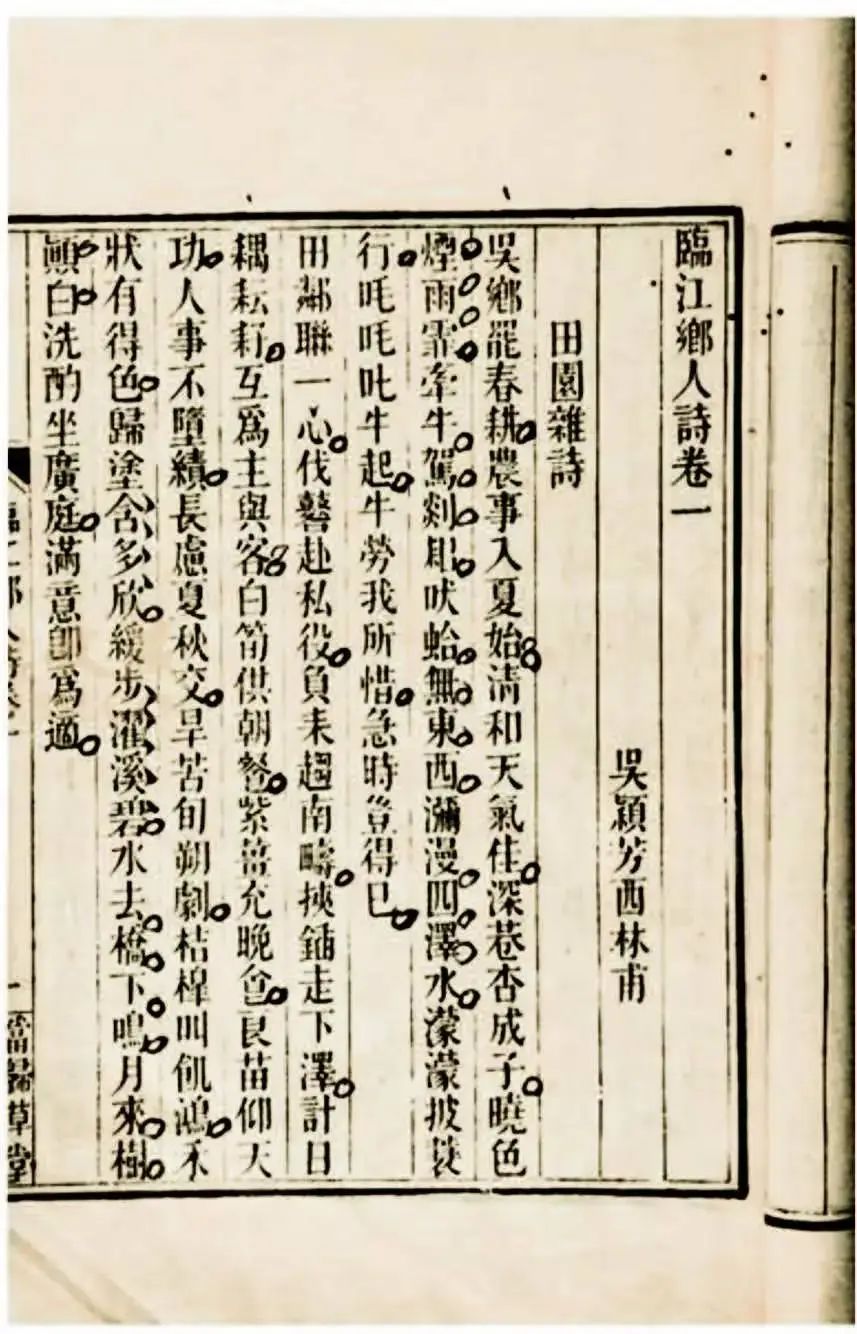 臨江鄉人詩卷一
吳穎芳西林甫
田園雜詩
吳鄉罷春耕農事入夏始清和天氣佳深巷杏成子曉色
煙雨霏牽牛駕剡耜吠蛤無東西瀰漫四澤水濛濛披蓑
行吒吒叱牛起牛勞我所惜急時豈得已
田鄰聯一心伐鼛赴私役負耒趨南疇挾鍤走下澤計日
耦耘耔互爲主與客白筍供朝餐紫薔充晚飧良苗仰天
功人事不墮績長慮夏秋交旱苦旬朔劇桔槹叫飢鴻禾
狀有得色歸塗含多欣緩步濯溪碧水去橋下鳴月來樹
顚白洗酌坐廣庭滿意卽爲適
當歸草堂